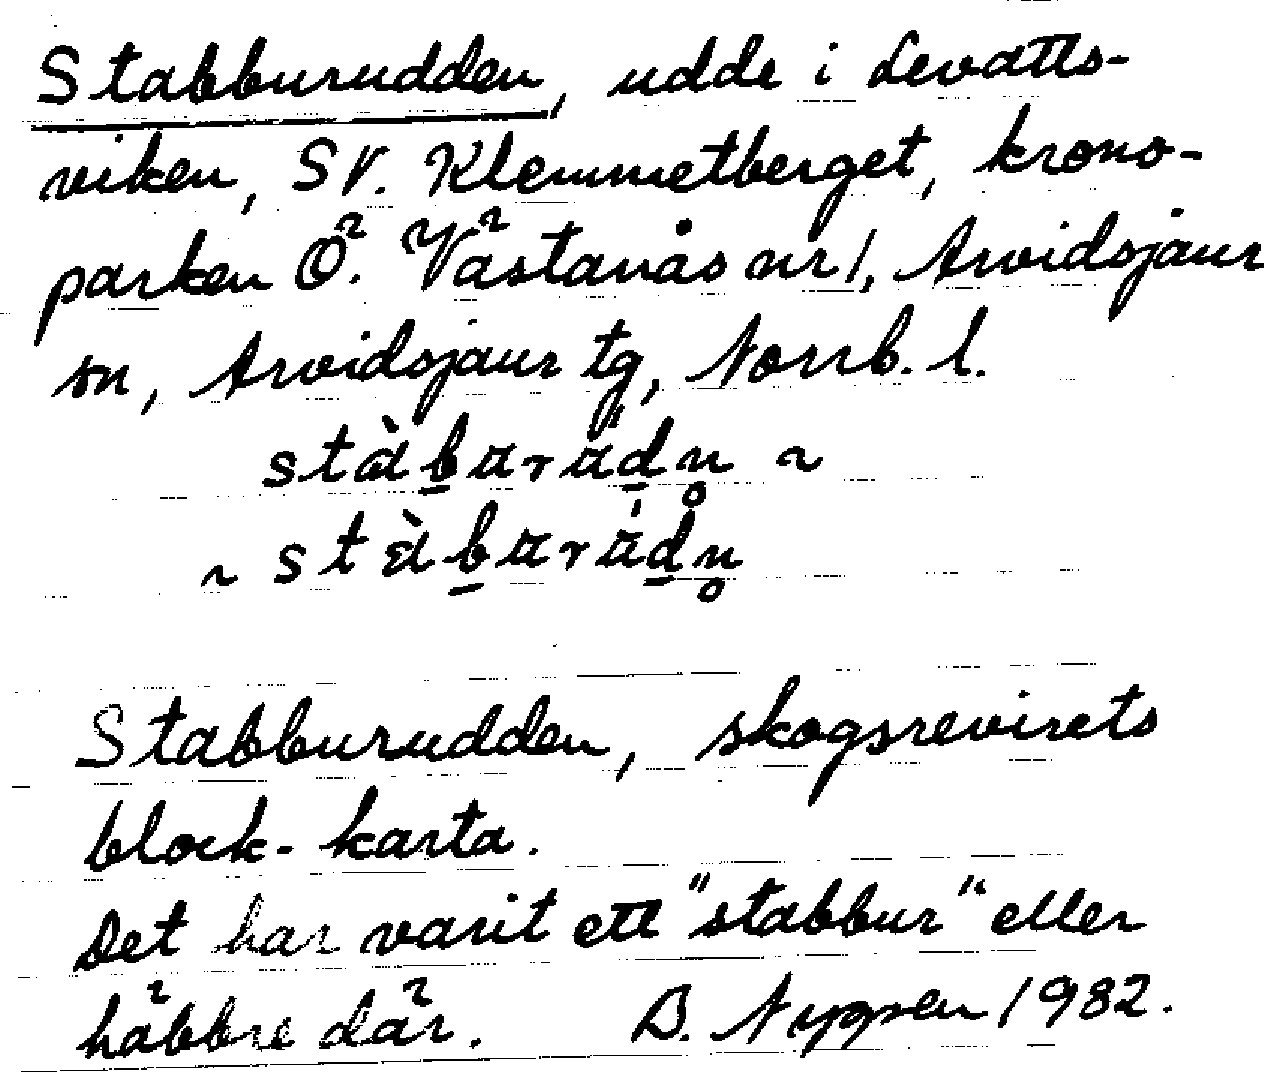 Stabburudden, udde i Levatts-
viken, SV. Klemmetberget, krono-
parken Ö. Västanås nr 1, Arvidsjaur
sn, Arvidsjaur tg, Norrb. l.
Stabburudden, skogsrevirets
block-karta.
Det har varit ett "stabbur" eller
häbbre där. B. Nygren 1982.